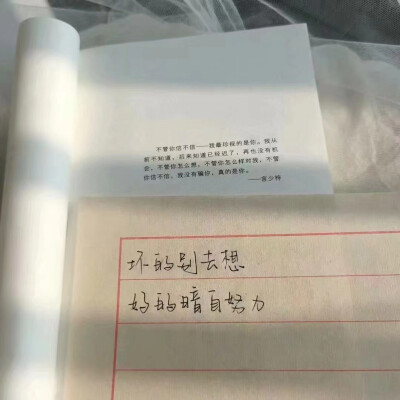 不管你信不信——我最珍视的是你。我从
前不知道，后来知道已经迟了，再也没有机
会。不管你怎么想，不管你怎么样对我，不管
你信不信，我没有骗你，真的是你。
——言少梓
坏的别去想
妈的暗自努力